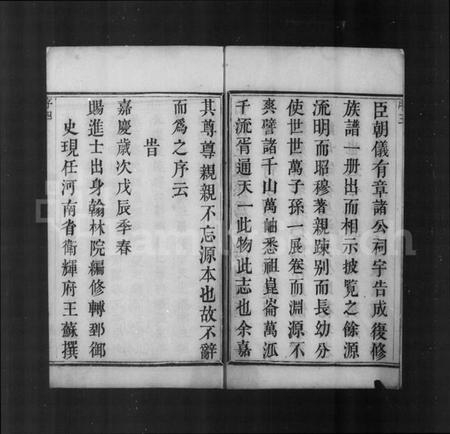 序三
臣朝儀有章諸公祠宇告成復修
族譜一册出而相示披覽之餘源
流明而昭穆著親踈别而長幼分
使世世萬子孫一展卷而淵源不
爽譬諸千山萬岫悉祖崑崙萬派
千流胥通天一此物此志也余嘉
其尊尊親親不忘源本也故不辭
而爲之序云
旹
嘉慶歲次戊辰季春
賜進士出身翰林院編修轉郅御
史現任河南省衛輝府王蘇撰
序四